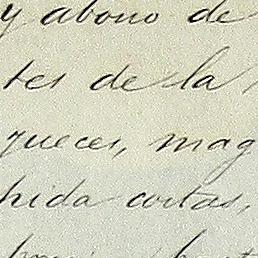 y abono de
tes de la
queces, mag
hida cortas,